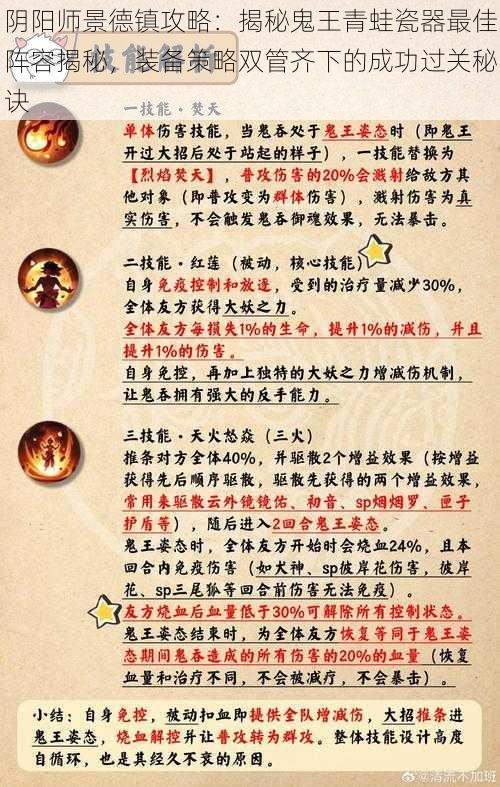 阴阳师景德镇攻略：揭秘鬼王青蛙瓷器最佳
阵容揭秘，装备策略双管齐下的成功过关秘
诀
技能解析
一技能·焚天
单体伤害技能，当鬼吞处于鬼王姿态时（即鬼王
开过大招后处于站起的样子），一技能替换为
【烈焰焚天】，普攻伤害的20%会溅射给敌方其
他对象（即普攻变为群体伤害），溅射伤害为真
实伤害，不会触发鬼吞御魂效果，无法暴击。
二技能·红莲（被动，核心技能）
自身免疫控制和放逐，受到的治疗量减少30%，
全体友方获得大妖之力。
全体友方每损失1%的生命，提升1%的减伤，并且
提升1%的伤害。
自身免控，再加上独特的大妖之力增减伤机制，
让鬼吞拥有强大的反手能力。
三技能·天火怒焱（三火）
推条对方全体40%，并驱散2个增益效果（按增益
获得先后顺序驱散，驱散先获得的两个增益效果，
常用来驱散云外镜镜佑、初音、sp烟烟罗、匣子
护盾等），随后进入2回合鬼王姿态。
鬼王姿态时，全体友方开始时会烧血24%，且本
回合内免疫伤害（如犬神、sp彼岸花伤害，彼岸
花、sp三尾狐等回合前伤害无法免疫）。
友方烧血后血量低于30%可解除所有控制状态。
鬼王姿态结束时，为全体友方恢复等同于鬼王姿
态期间鬼吞造成的所有伤害的20%的血量（恢复
血量和治疗不同，不会被减疗，不会暴击）。
小结：自身免控，被动扣血即提供全队增减伤，大招推条进
鬼王姿态，烧血解控并让普攻转为群攻。整体技能设计高度
自循环，也是其经久不衰的原因。
@清流不加班